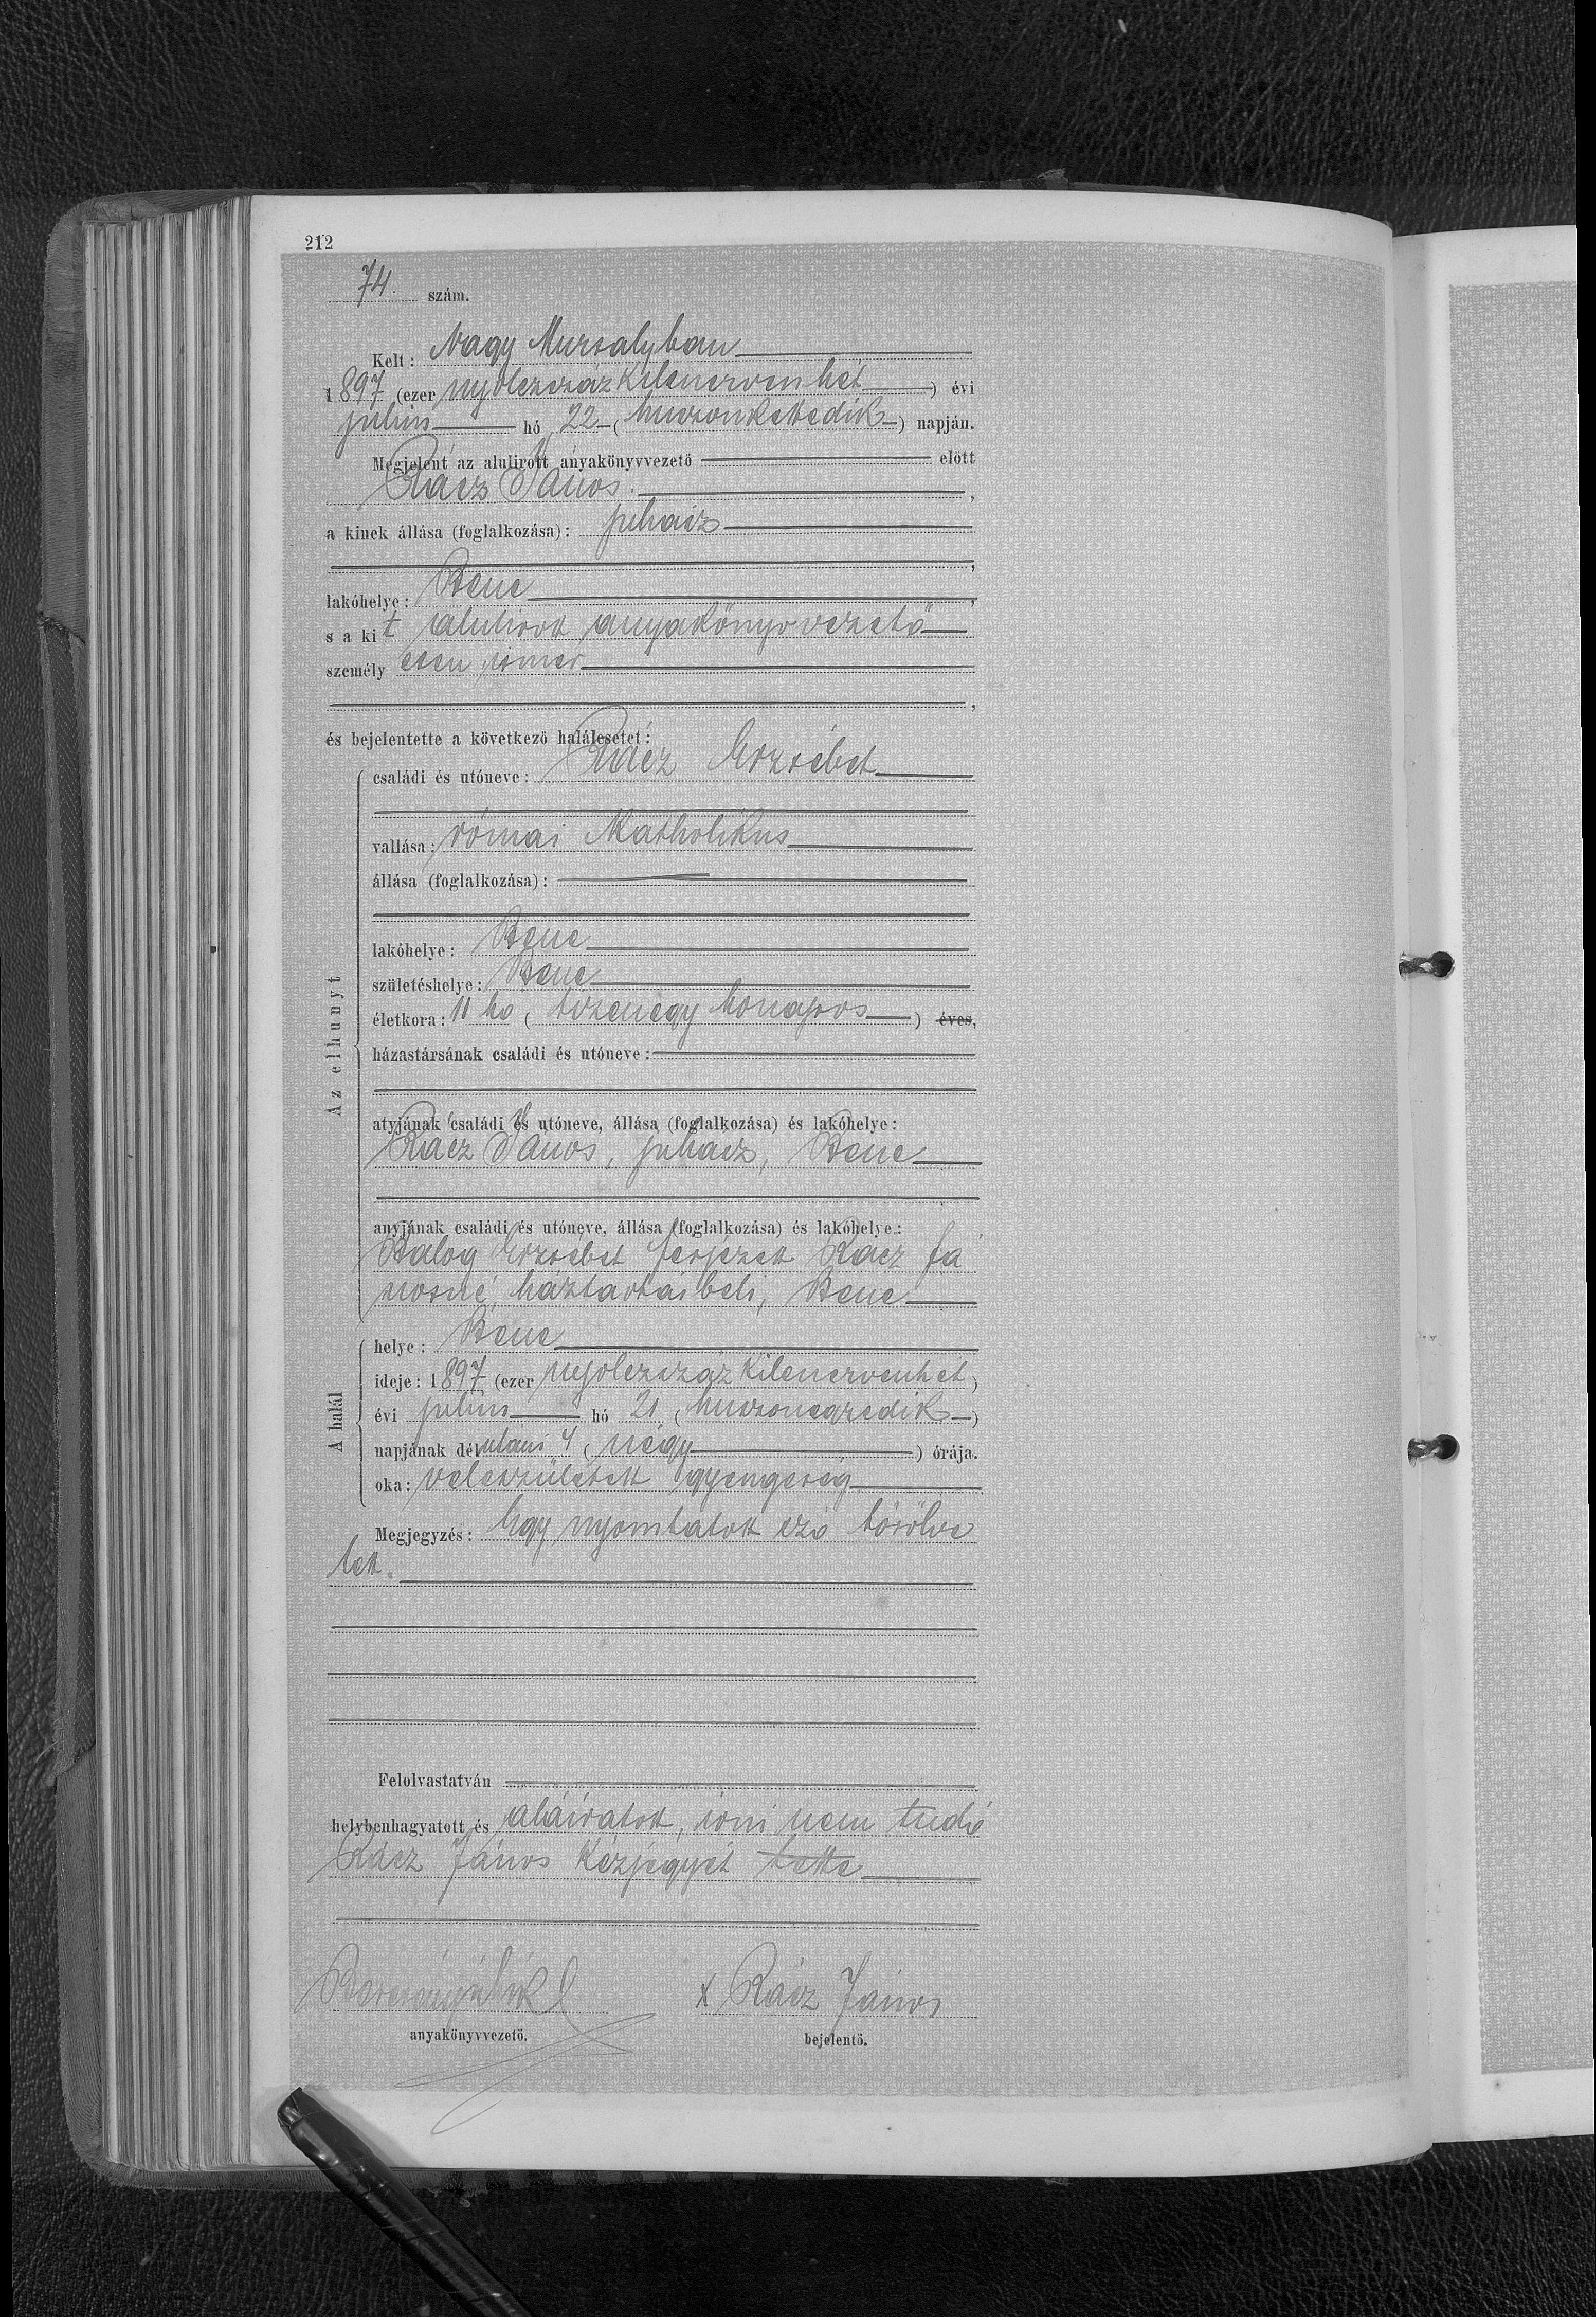 212
74. szám.
Kelt: Nagy Muzsalyban
1897 (ezer nyolczszázkilenczvenhét) évi
julius hó 22 (huszonkettedik) napján.
Megjelent az alulirott anyakönyvvezető előtt
Rácz János,
a kinek állása (foglalkozása): juhász
lakóhelye: Bene,
s a kit alulirott anyakönyvvezető
személyesen ismer,
és bejelentette a következő halálesetet:
Az elhunyt
családi és utóneve: Rácz Erzsébet
vallása: római katholikus
állása (foglalkozása):
lakóhelye: Bene
születéshelye: Bene
életkora: 11 hó (tizenegy hónapos) éves,
házastársának családi és utóneve:
atyjának családi és utóneve, állása (foglalkozása) és lakóhelye:
Rácz János, juhász, Bene
anyjának családi és utóneve, állása (foglalkozása) és lakóhelye:
Balog Erzsébet férjezett Rácz Já
nosné, háztartásbeli, Bene
A halál
helye: Bene
ideje: 1897 (ezer nyolczszázkilenczvenhét)
évi julius hó 21 (huszonegyedik)
napjának délutáni 4 (négy) órája.
oka: veleszületett gyengeség
Megjegyzés: Egy nyomtatott szó törölve
lett.
Felolvastatván
helybenhagyatott és aláiratott, irni nem tudó
Rácz János kézjegyét tette
x Rácz János
anyakönyvvezető. bejelentő.